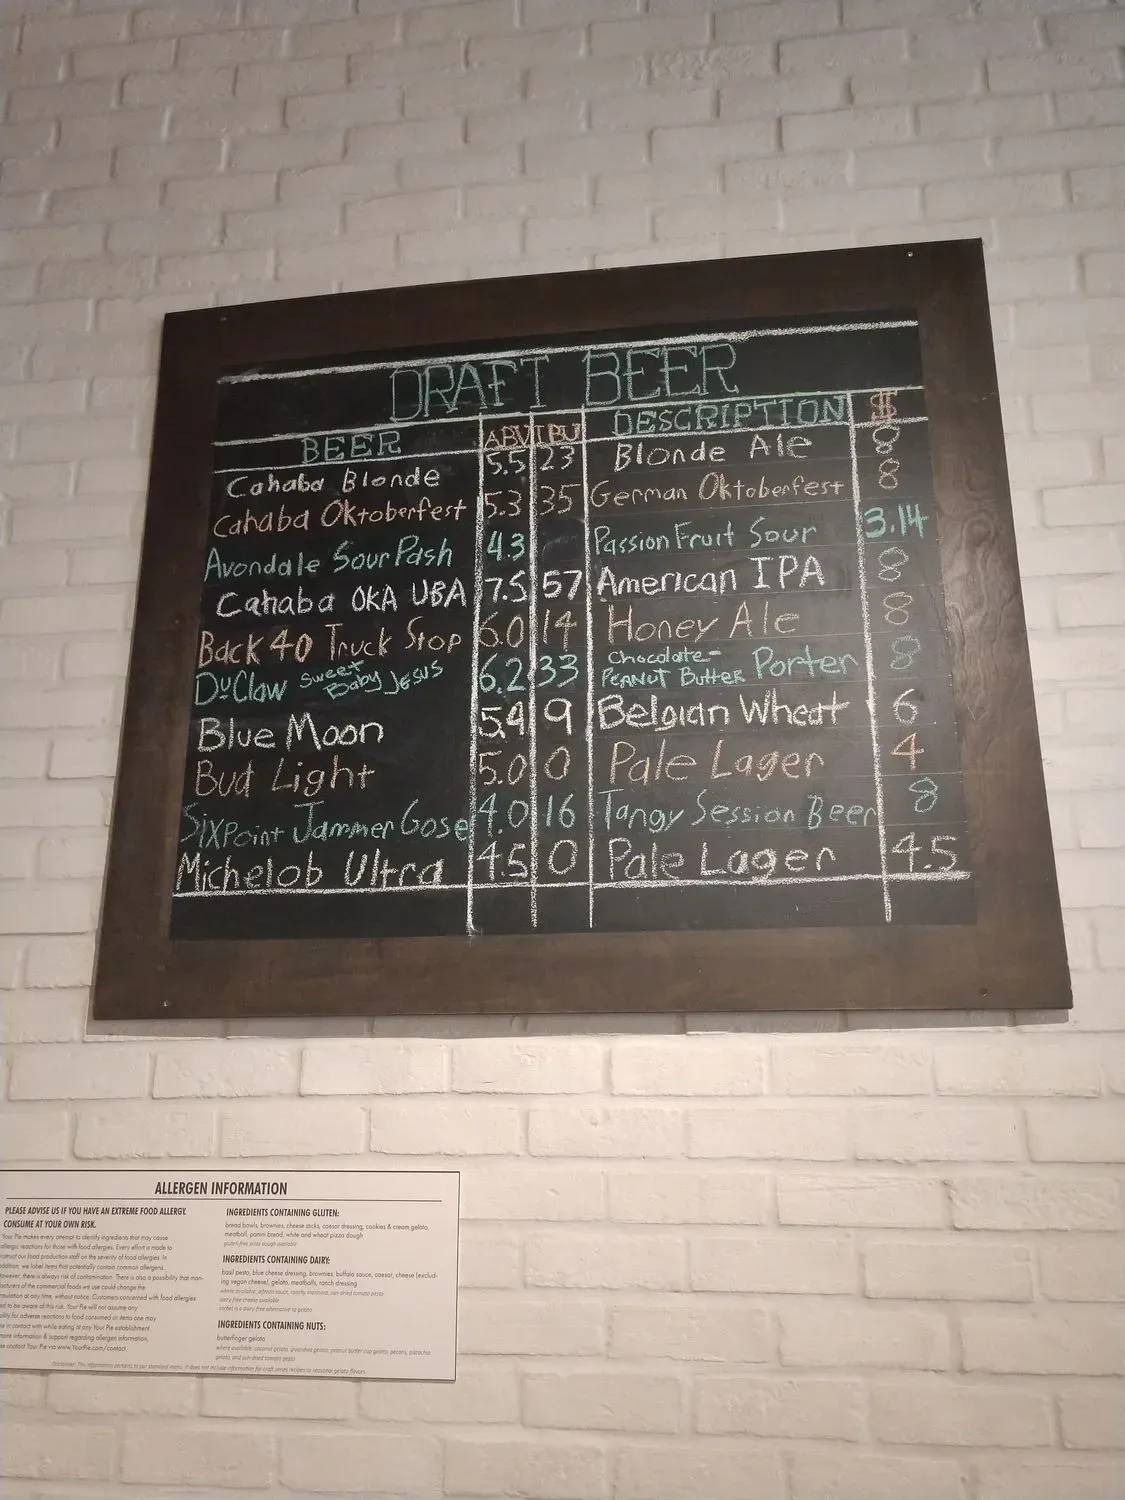 DRAFT BEER
BEER ABV IBU DESCRIPTION $
Cahaba Blonde 5.5 23 Blonde Ale 8
Cahaba Oktoberfest 5.3 35 German Oktoberfest 8
Avondale Sour Pash 4.3 Passion Fruit Sour 3.14
Cahaba OKA UBA 7.5 57 American IPA 8
Back 40 Truck Stop 6.0 14 Honey Ale 8
DuClaw Sweet Baby Jesus 6.2 33 Chocolate- Peanut Butter Porter 8
Blue Moon 5.4 9 Belgian Wheat 6
Bud Light 5.0 0 Pale Lager 4
Sixpoint Jammer Gose 4.0 16 Tangy Session Beer 8
Michelob Ultra 4.5 0 Pale Lager 4.5
ALLERGEN INFORMATION
PLEASE ADVISE US IF YOU HAVE AN EXTREME FOOD ALLERGY.
CONSUME AT YOUR OWN RISK.
Your Pie makes every attempt to identify ingredients that may cause
allergic reactions for those with food allergies. Every effort is made to
instruct our food production staff on the severity of food allergies. In
addition, we label items that potentially contain common allergens.
However, there is always risk of contamination. There is also a possibility that man-
ufacturers of the commercial foods we use could change the
formulation at any time, without notice. Customers concerned with food allergies
need to be aware of this risk. Your Pie will not assume any
liability for adverse reactions to food consumed or items one may
come in contact with while eating at any Your Pie establishment.
more information & support regarding allergen information,
contact Your Pie via www.YourPie.com/contact.
INGREDIENTS CONTAINING GLUTEN:
bread bowls, brownies, cheese sticks, caesar dressing, cookies & cream gelato,
meatball, panini bread, white and wheat pizza dough
gluten free pizza dough available
INGREDIENTS CONTAINING DAIRY:
basil pesto, blue cheese dressing, brownies, buffalo sauce, caesar, cheese (exclud-
ing vegan cheese), gelato, meatballs, ranch dressing
where available: alfredo sauce, sun-dried tomato pesto
dairy free cheese available
sorbet is a dairy-free alternative to gelato
INGREDIENTS CONTAINING NUTS:
butterfinger gelato
where available: coconut gelato, gelato, peanut butter cup gelato, pecans, pistachio
gelato, and sun-dried tomato pesto
Disclaimer: This information pertains to our standard menu. It does not include information for craft series recipes or seasonal gelato flavors.